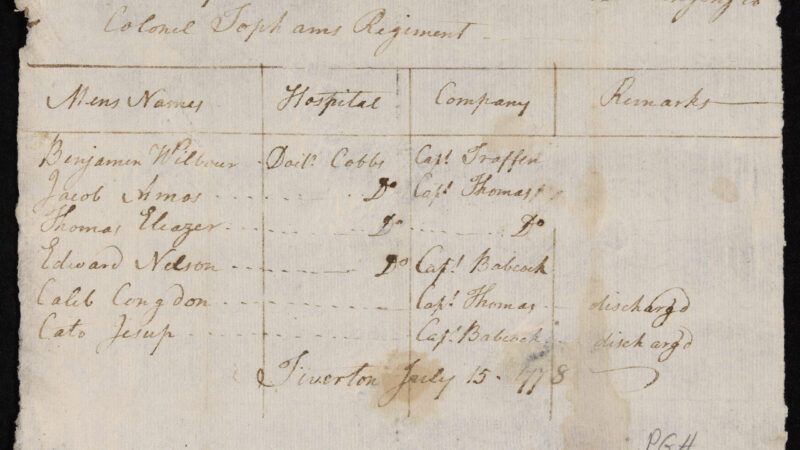 Colonel Tophams Regiment
Mens Names Hospital Company Remarks
Benjamen Wilbour Doctr. Cobbs Capt. Traffen
Jacob Ammos Do Capt. Thomas
Thomas Eleazer Do Do
Edward Nelson Do Capt. Babcock
Caleb Congdon Capt. Thomas discharg'd
Cato Jesup Capt. Babcock discharg'd
Tiverton July 15. 778
PGH